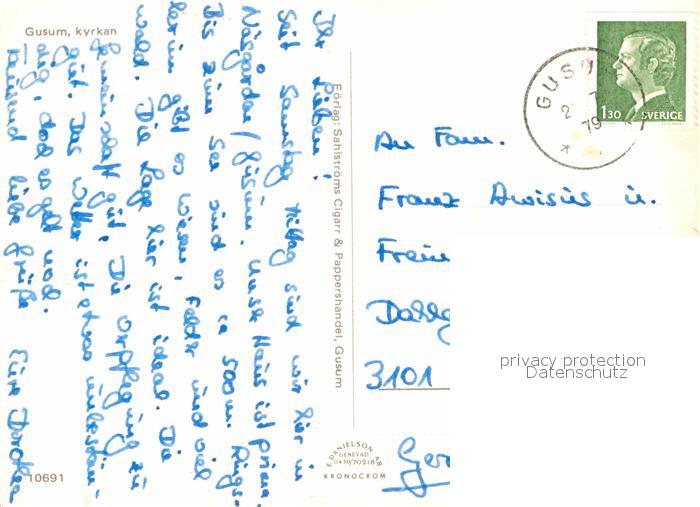 Gusum, kyrkan
Ihr Lieben!
Seit Samstag Mittag sind wir hier in
Näsgården/Gusum. Unser Haus ist prima.
Bis zum See sind es ca 500m. Rings-
herum gibt es Wiesen, Felder und viel
Wald. Die Lage hier ist ideal. Die
Gemeinschaft gut, die Verpflegung zu
gut. Das Wetter ist etwas unbestän-
dig, doch es geht noch.
Tausend liebe Grüße Eure Dorothea
10691
Förlag: Sahlströms Cigarr & Pappershandel, Gusum
E. DANIELSON AB
GENEVAD
0430/70218
KRONOCROM
GUSUM
79
1 30 SVERIGE
An Fam.
Franz Awisius u.
3101
Ger
privacy protection
Datenschutz